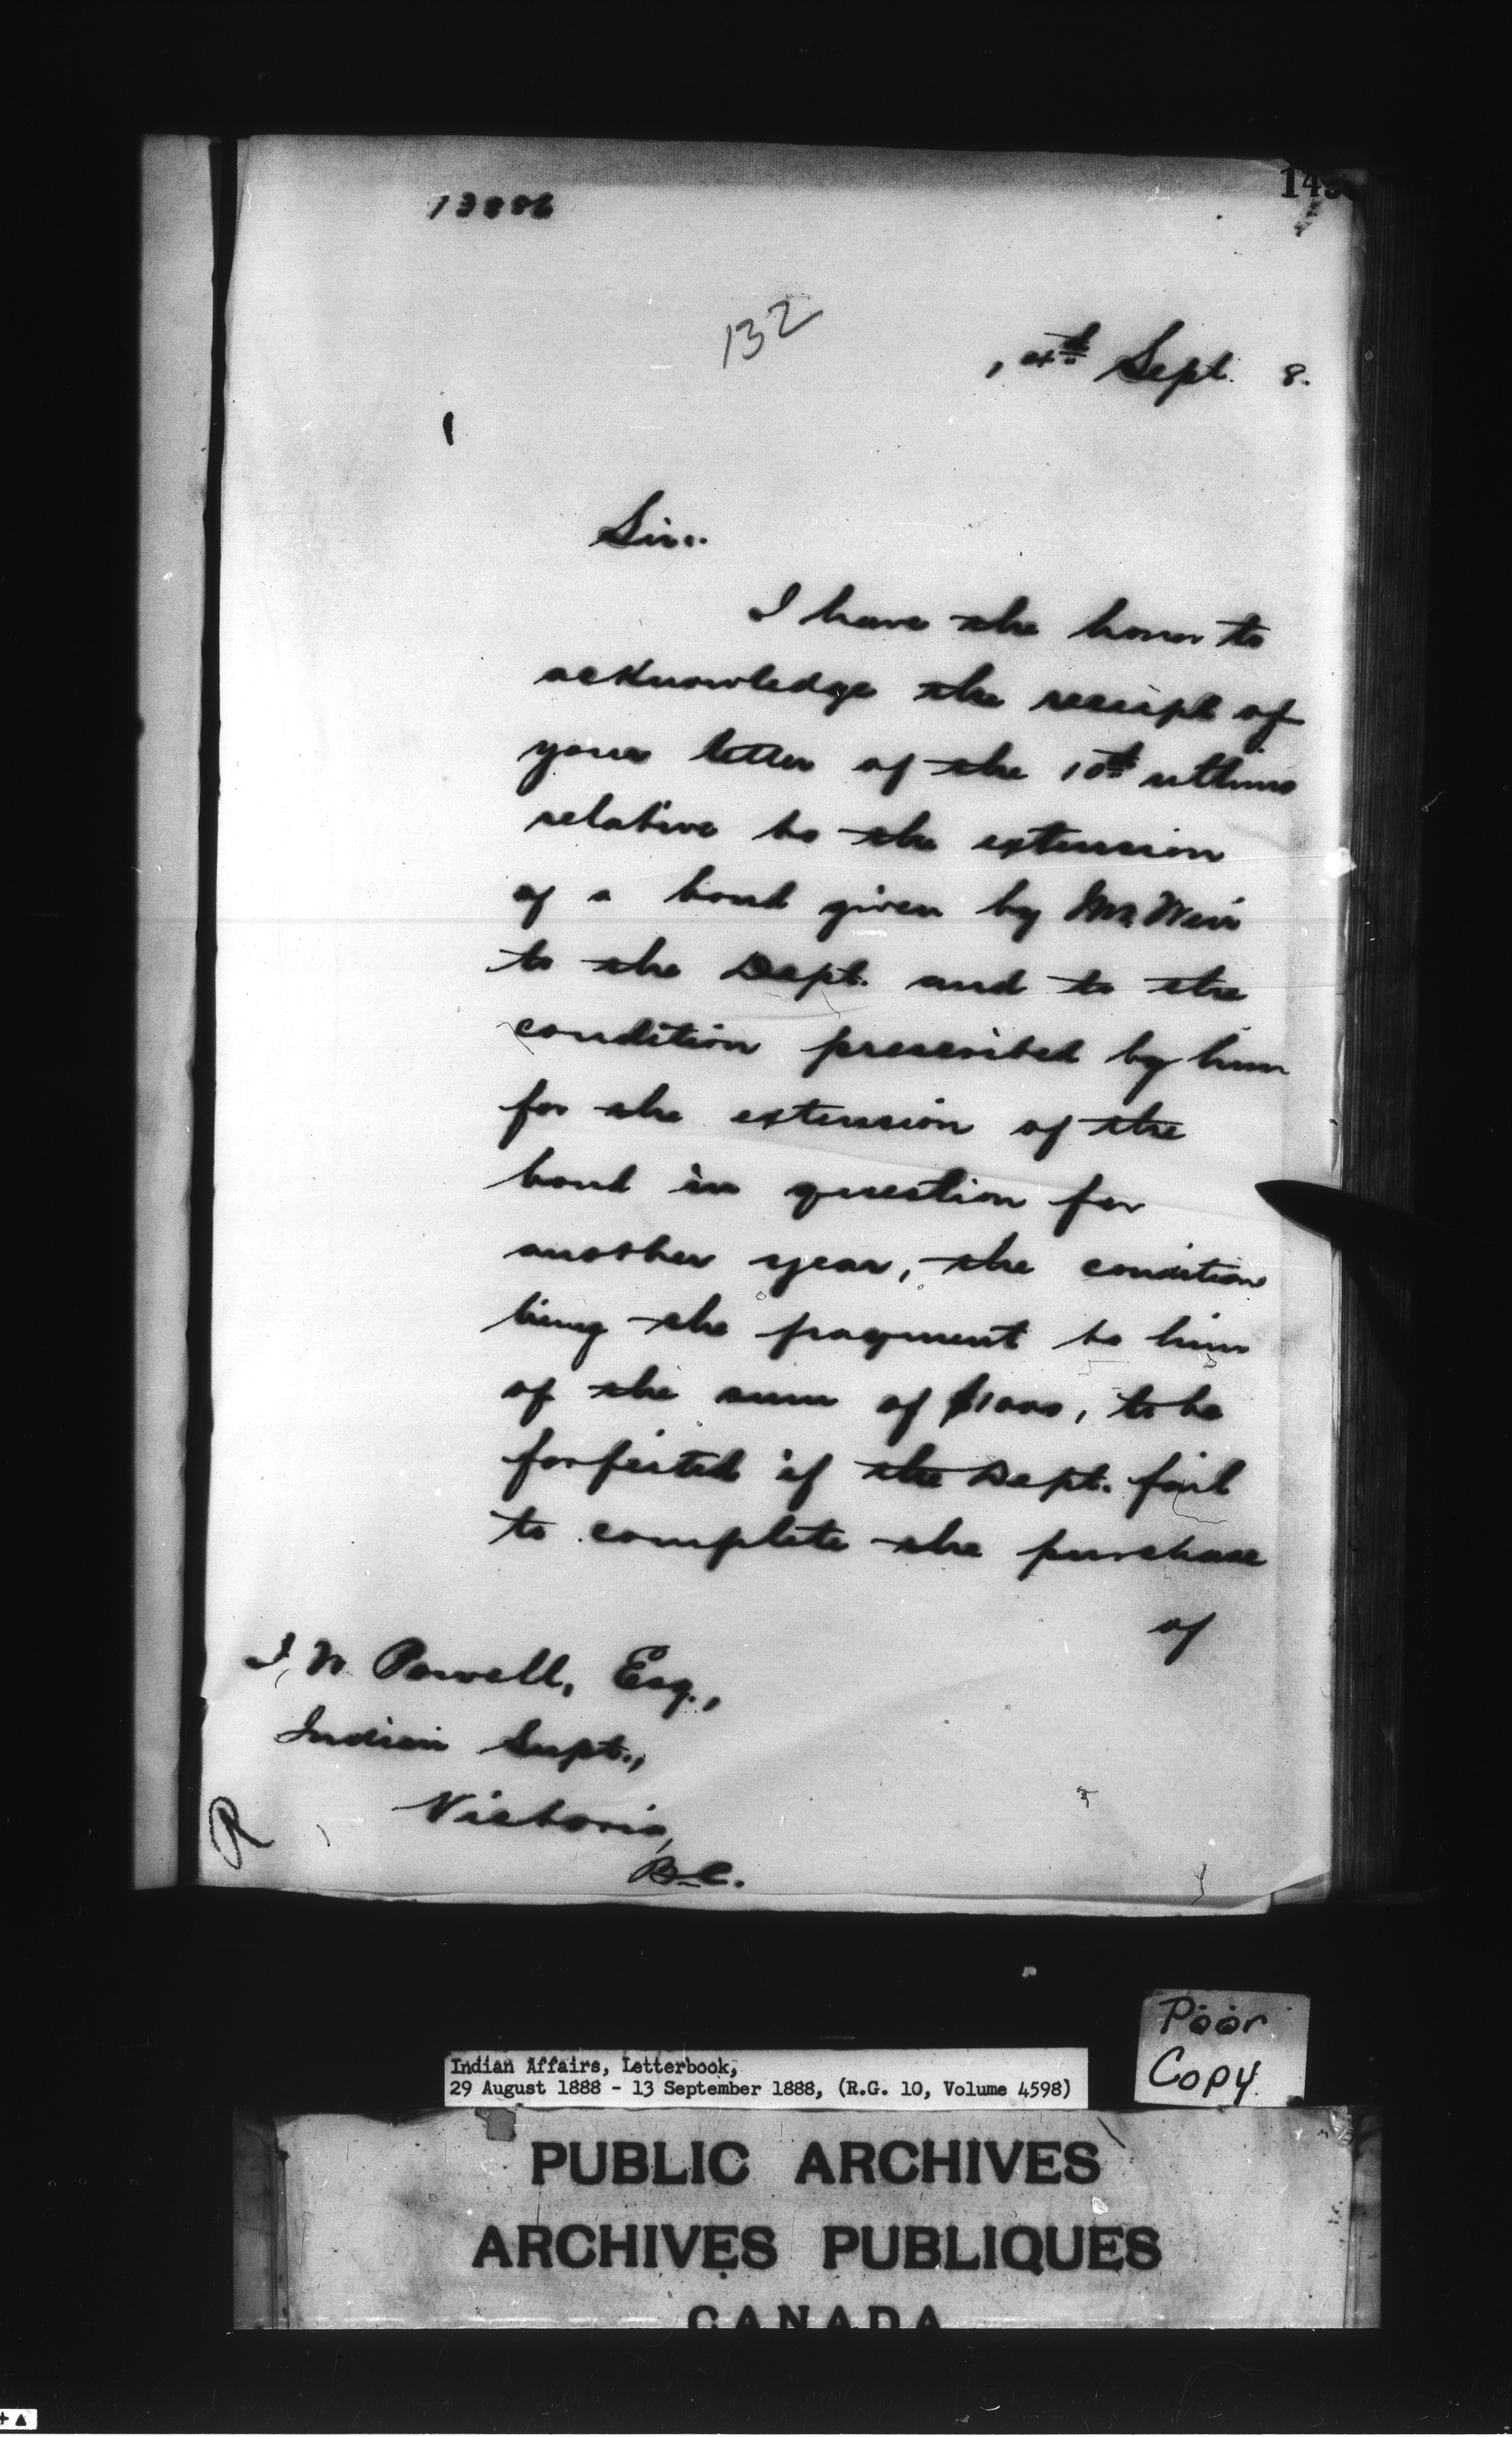 13886
132
Sept. 8.
Sir:
I have the honor to
acknowledge the receipt of
your letter of the 10th ultimo
relative to the extension
of a bond given by Mr. Weir
to the Dept. and to the
condition prescribed by him
for the extension of the
bond in question for
another year, the condition
being the payment to him
of the sum of $1000, to be
forfeited if the Dept. fail
to complete the purchase
of
I. W. Powell, Esq.,
Indian Supt.,
Victoria,
B.C.
R
Poor
Copy
Indian Affairs, Letterbook,
29 August 1888 - 13 September 1888, (R.G. 10, Volume 4598)
PUBLIC ARCHIVES
ARCHIVES PUBLIQUES
CANADA